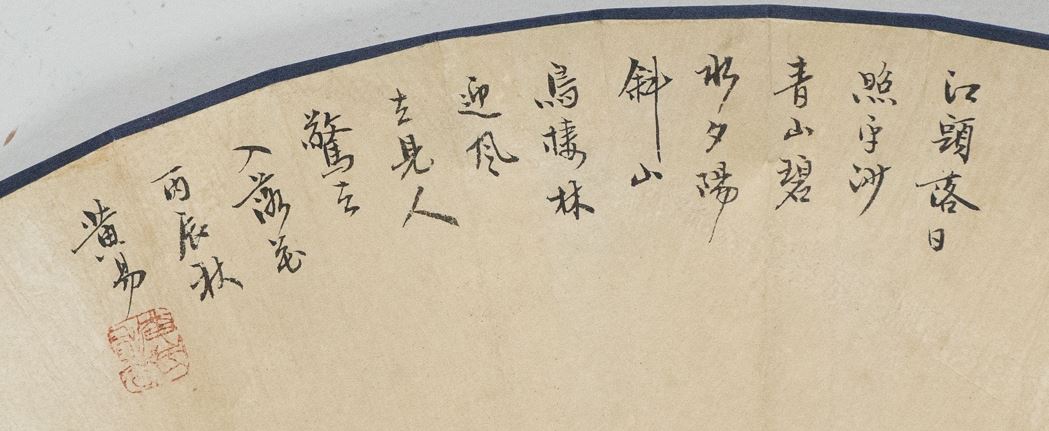 江頭落日
照平沙
青山碧
水夕陽
斜山
烏棲林
迎風
立見人
驚去
入蘆花
丙辰秋
黃易